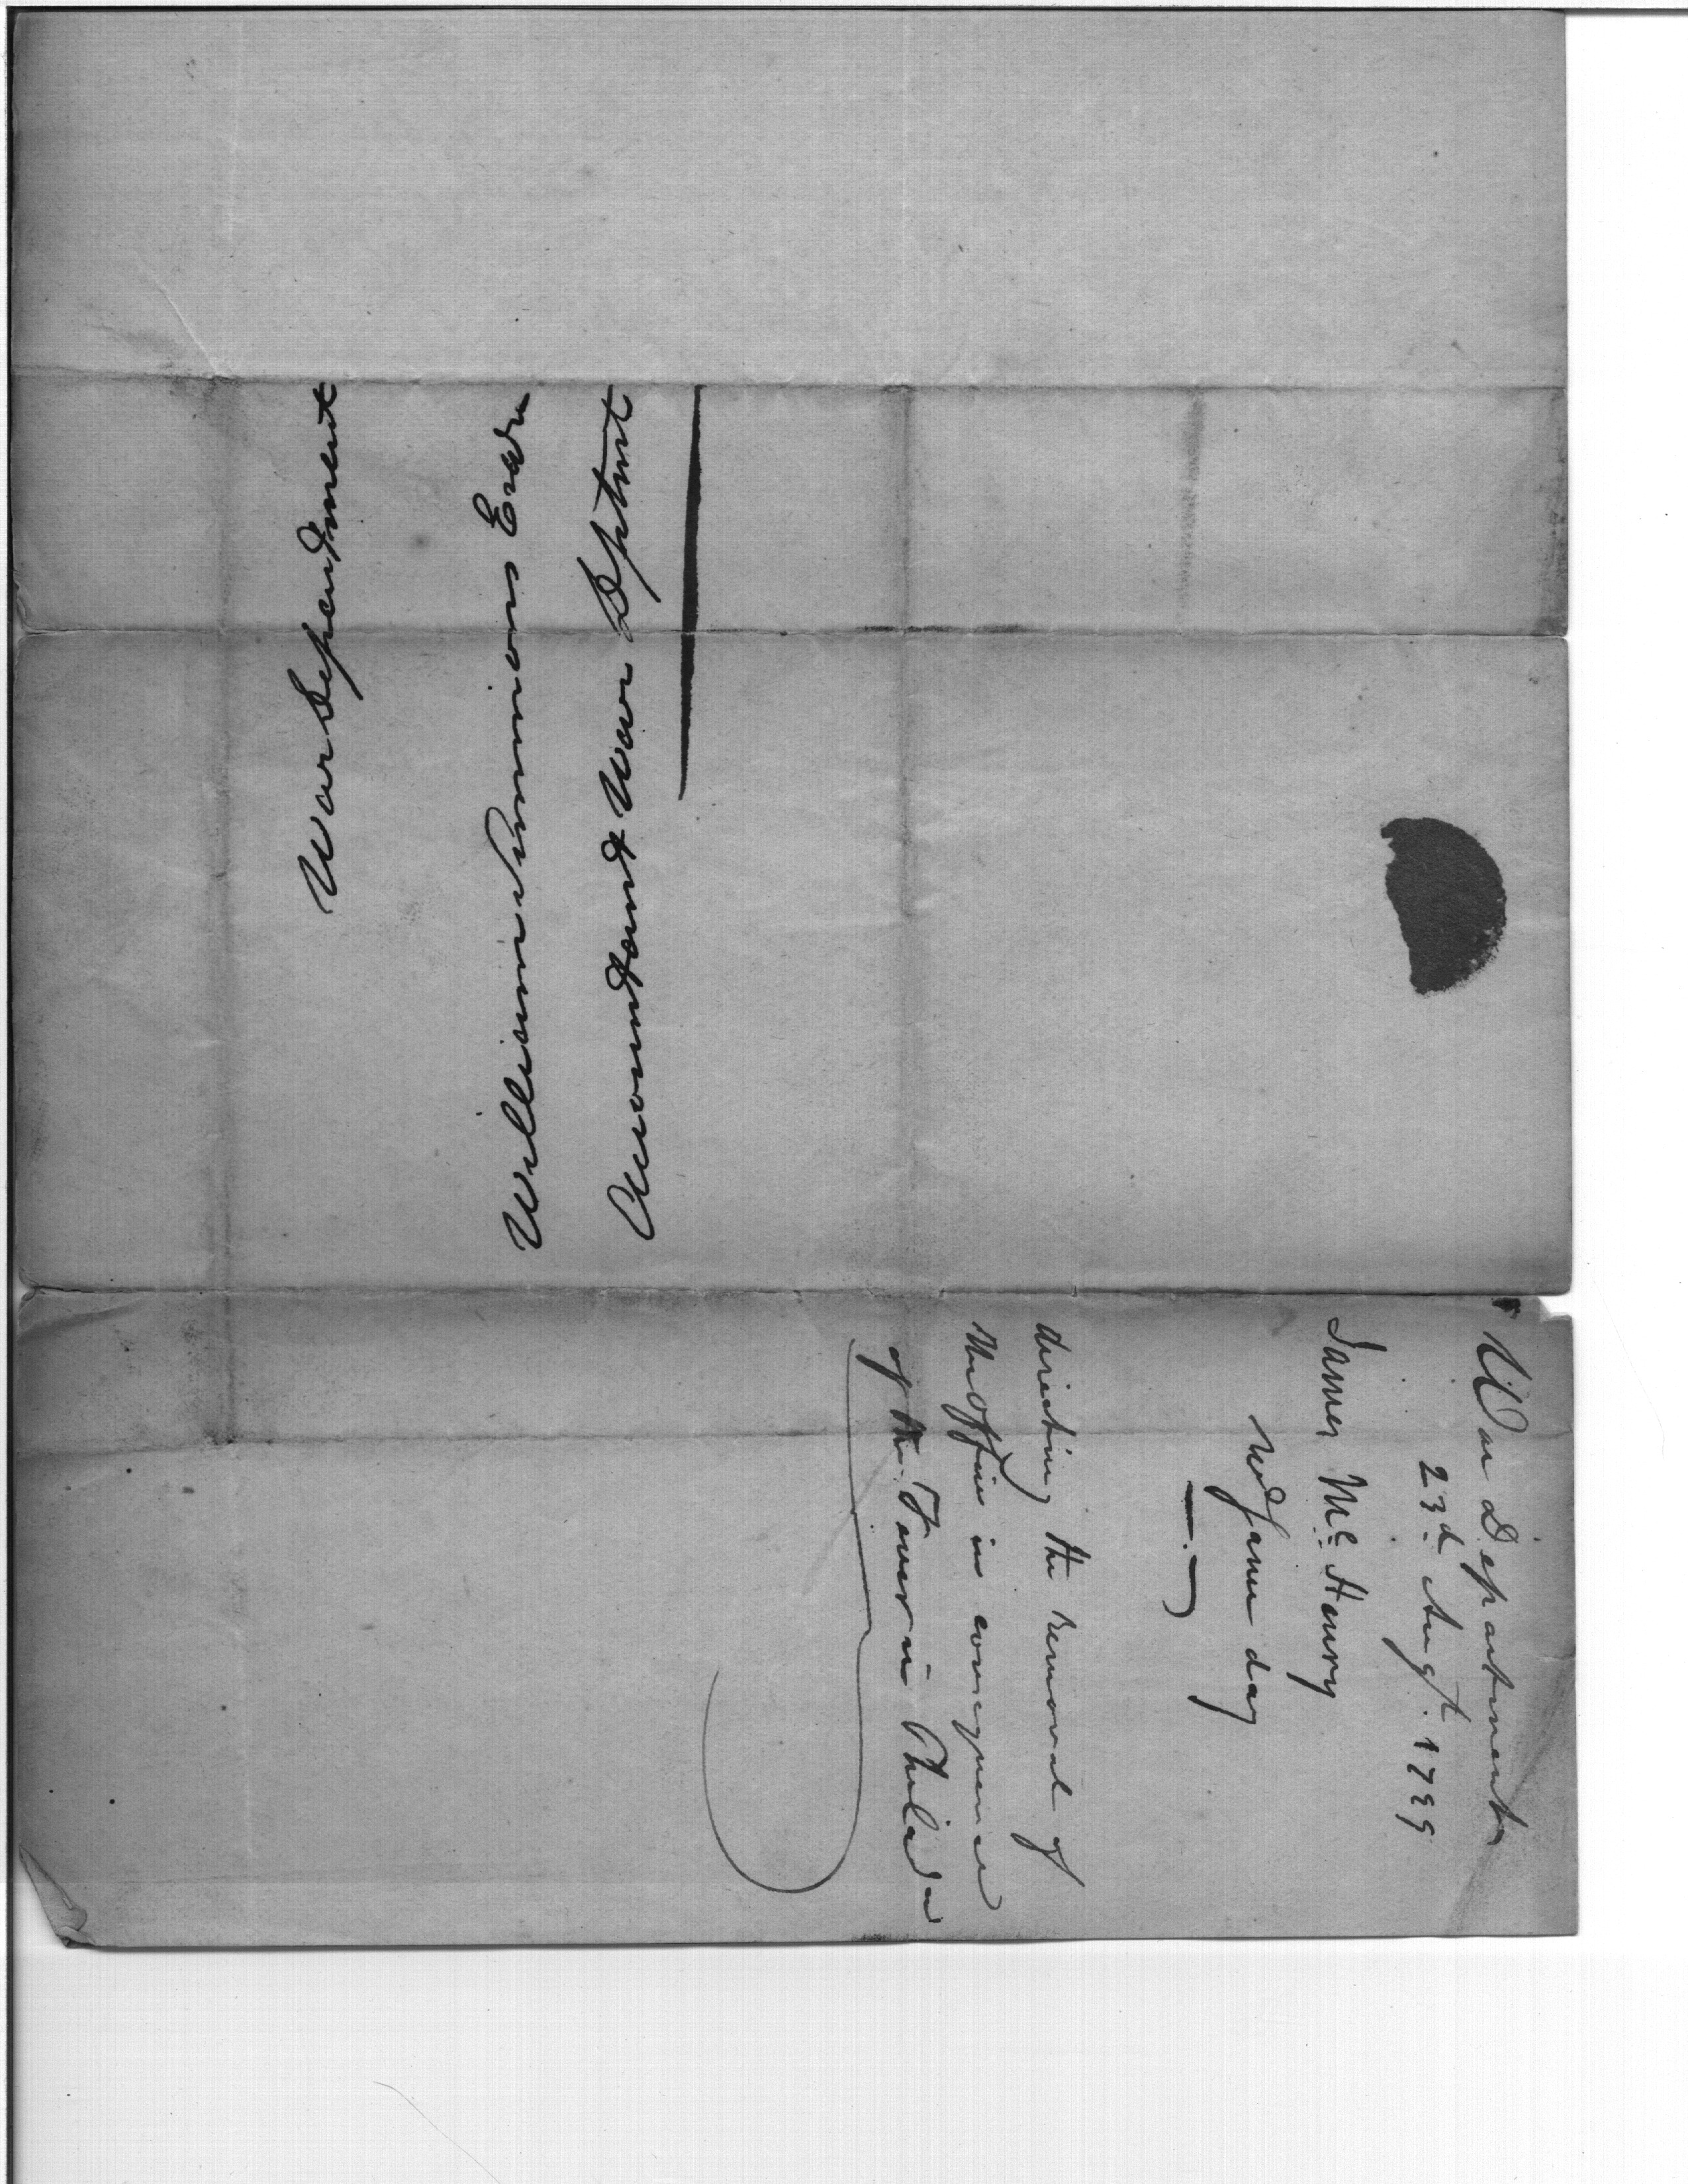 War Department
William Simmons Esqr
Accountant War Deptmt
War Department
23d. Augt. 1799
James Mc. Henry
recd same day
directing the removal of
the Office in consequence
of the Fever in Philada